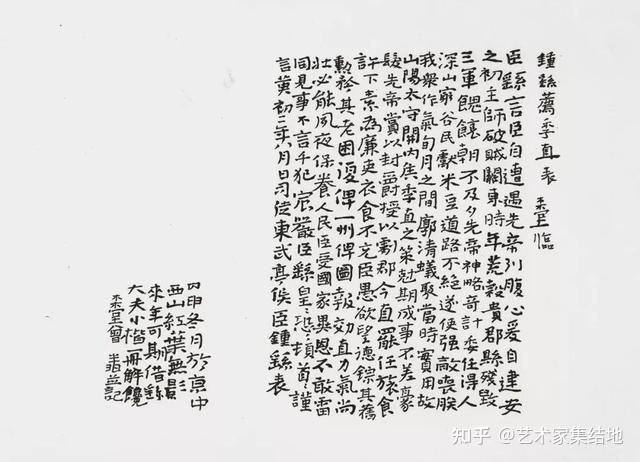 鍾繇薦季直表 臨
臣繇言臣自遭遇先帝列腹心爰自建安
之初王師破賊關東時年荒穀貴郡縣殘毀
三軍餽饟朝不及夕先帝神略奇計委任得人
深山窮谷民獻米豆道路不絕遂使强敵喪膽
我衆作氣旬月之間廓清蟻聚當時實用故
山陽太守關内侯季直之策尅期成事不差豪
髮先帝賞以封爵授以劇郡今直罷任旅食
許下素為廉吏衣食不充臣愚欲望德錄其舊
勳矜其老困復俾一州俾圖報効直力氣尚
壯必能夙夜保養人民臣受國家異恩不敢雷
同見事不言干犯宸嚴臣繇皇々恐々頓首々謹
言黃初三年八月日司徒東武亭侯臣鍾繇表
丙申冬月於京中
西山紅葉無影
來年可期借繇
大夫小楷一冊解饞
曾翔並記
知乎 @艺术家集结地